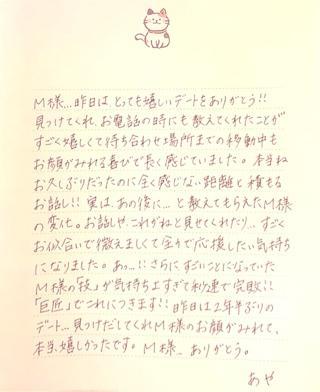 M様…昨日は、とっても嬉しいデートをありがとう!!
見つけてくれ、お電話の時にも教えてくれたことが
すごく嬉しくて待ち合わせ場所までの移動中も
お顔がみれる喜びで長く感じていました。本当ね
お久しぶりだったのに全く感じない距離と積もる
お話し!! 実は、あの後に…と教えてもらえたM様
の変化。お話しや、これがねと見せてくれたり…すごく
お似合いで微えましくて全力で応援したい気持ち
になりました。あっ…!! さらに、すごいことになっていた
M様の「技」が気持ちよすぎて秒速で完敗!!
「巨匠」でこれにつきます!! 昨日は2年半ぶりの
デート…見つけだしてくれM様のお顔がみれて、
本当、嬉しかったです。M様…ありがとう。
あや